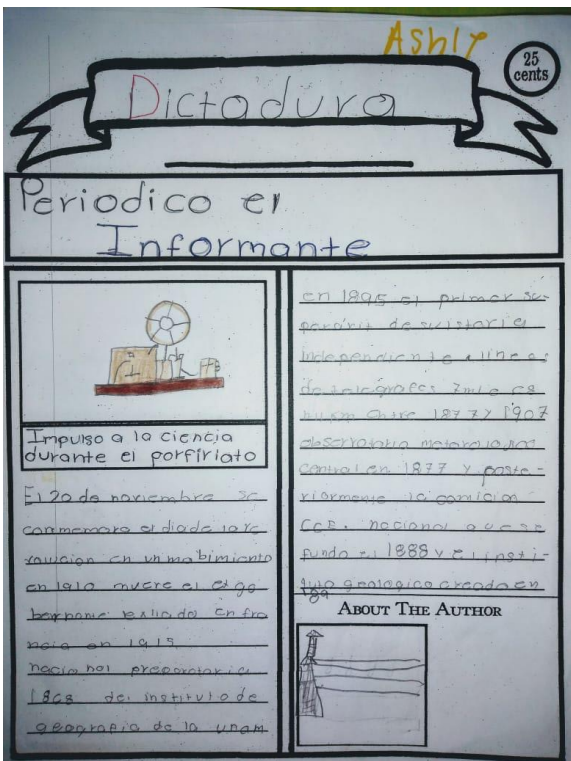 Ashly
25
cents
Dictadura
Periodico el
Informante
Impulso a la ciencia
durante el porfiriato
El 20 de noviembre se
conmemora el dia de la re
volucion en un mobimiento
en 1910 muere el ex go
bernante exliado en fra
ncia en 1915.
nacional preparatoria
1868 del instituto de
geografia de la unam
en 1895 el primer su-
de su istoria
independiente a lineas
de telegrafos 7 mil
km entre 1877 y 1907
observatorio
central en 1877 y poste-
riormente la comicion
nacional que se
fundo el 1888 y el insti-
tuto geologico creado en
189
ABOUT THE AUTHOR